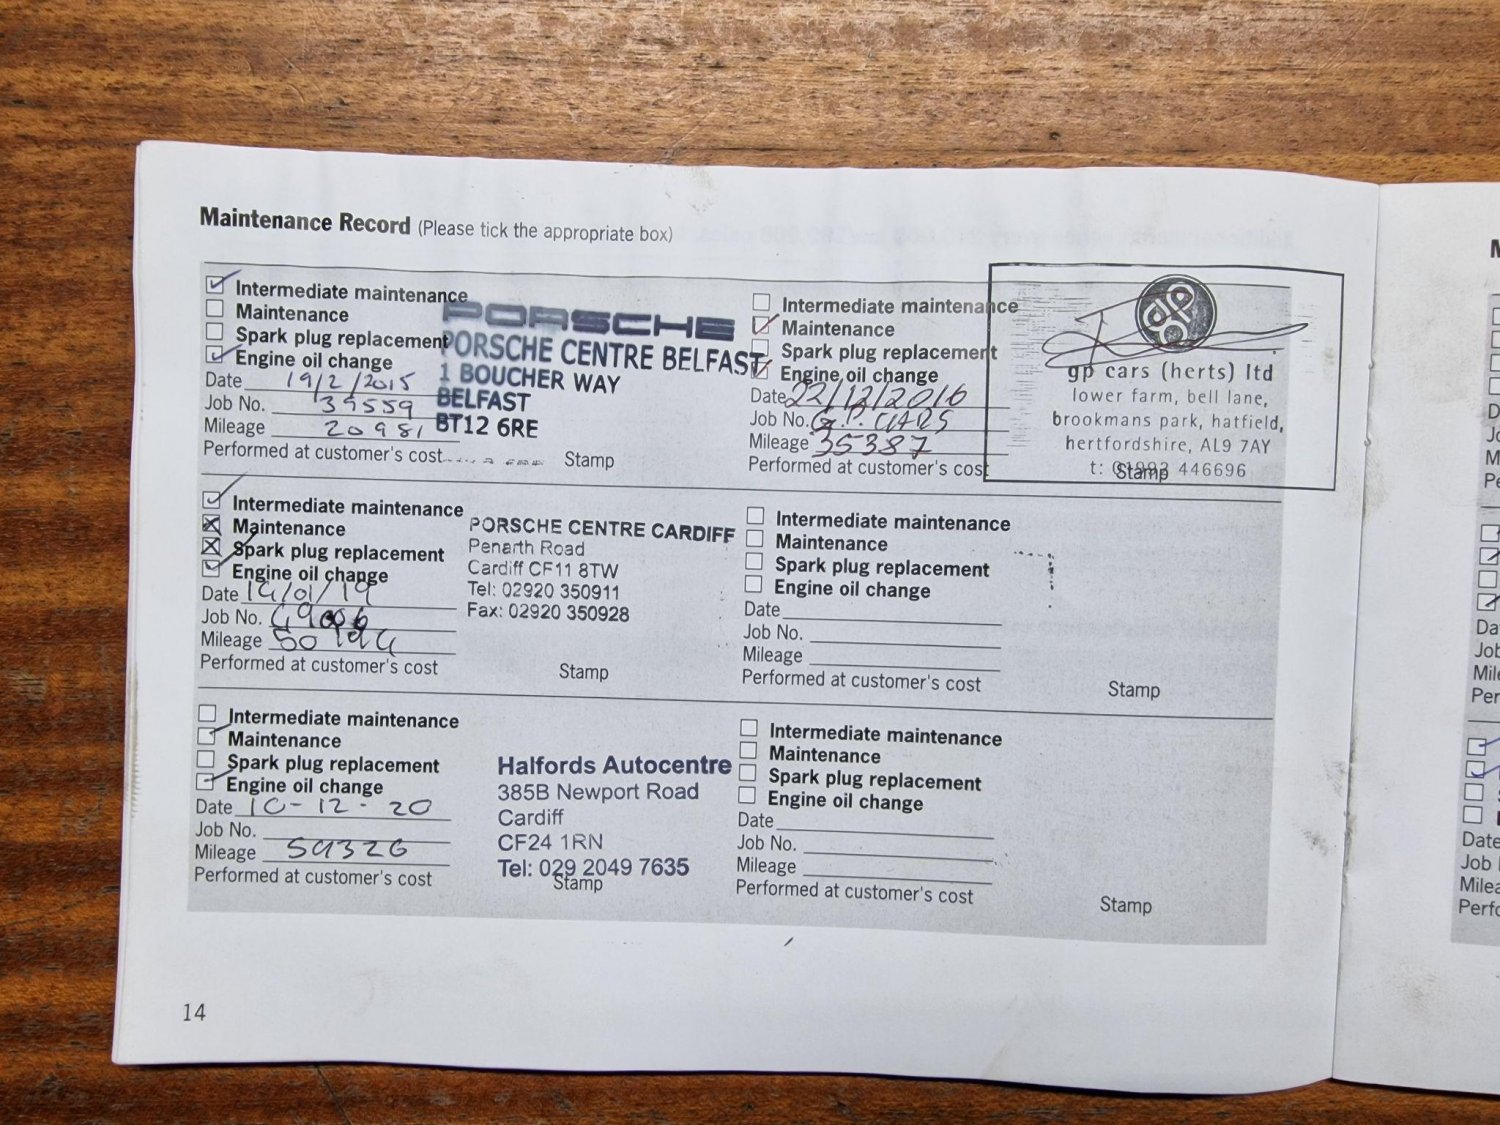 Maintenance Record (Please tick the appropriate box)
Intermediate maintenance
Maintenance
Spark plug replacement
Engine oil change
Date 19/2/2015
Job No. 39559
Mileage 20981
Performed at customer's cost
Stamp
PORSCHE
PORSCHE CENTRE BELFAST
1 BOUCHER WAY
BELFAST
BT12 6RE
Intermediate maintenance
Maintenance
Spark plug replacement
Engine oil change
Date 22/12/2016
Job No. G.P. CARS
Mileage 35387
Performed at customer's cost
gp cars (herts) ltd
lower farm, bell lane,
brookmans park, hatfield,
hertfordshire, AL9 7AY
t: 446696
Stamp
Intermediate maintenance
Maintenance
Spark plug replacement
Engine oil change
Date
Job No.
Mileage
Performed at customer's cost
Stamp
PORSCHE CENTRE CARDIFF
Penarth Road
Cardiff CF11 8TW
Tel: 02920 350911
Fax: 02920 350928
Intermediate maintenance
Maintenance
Spark plug replacement
Engine oil change
Date
Job No.
Mileage
Performed at customer's cost
Stamp
Intermediate maintenance
Maintenance
Spark plug replacement
Engine oil change
Date 10-12-20
Job No.
Mileage
Performed at customer's cost
Halfords Autocentre
385B Newport Road
Cardiff
CF24 1RN
Tel: 029 2049 7635
Stamp
Intermediate maintenance
Maintenance
Spark plug replacement
Engine oil change
Date
Job No.
Mileage
Performed at customer's cost
Stamp
14